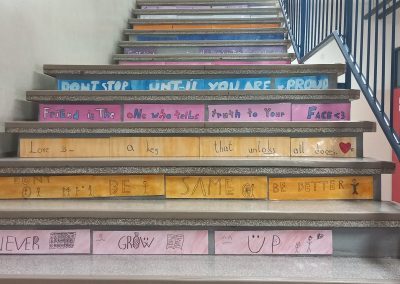 DON'T STOP UNTIL YOU ARE PROUD
Friend is The oNe who tells truth to Your FACE<3
Love is a key that unlocks all doors
DON'T BE SAME BE BETTER
NEVER GROW UP